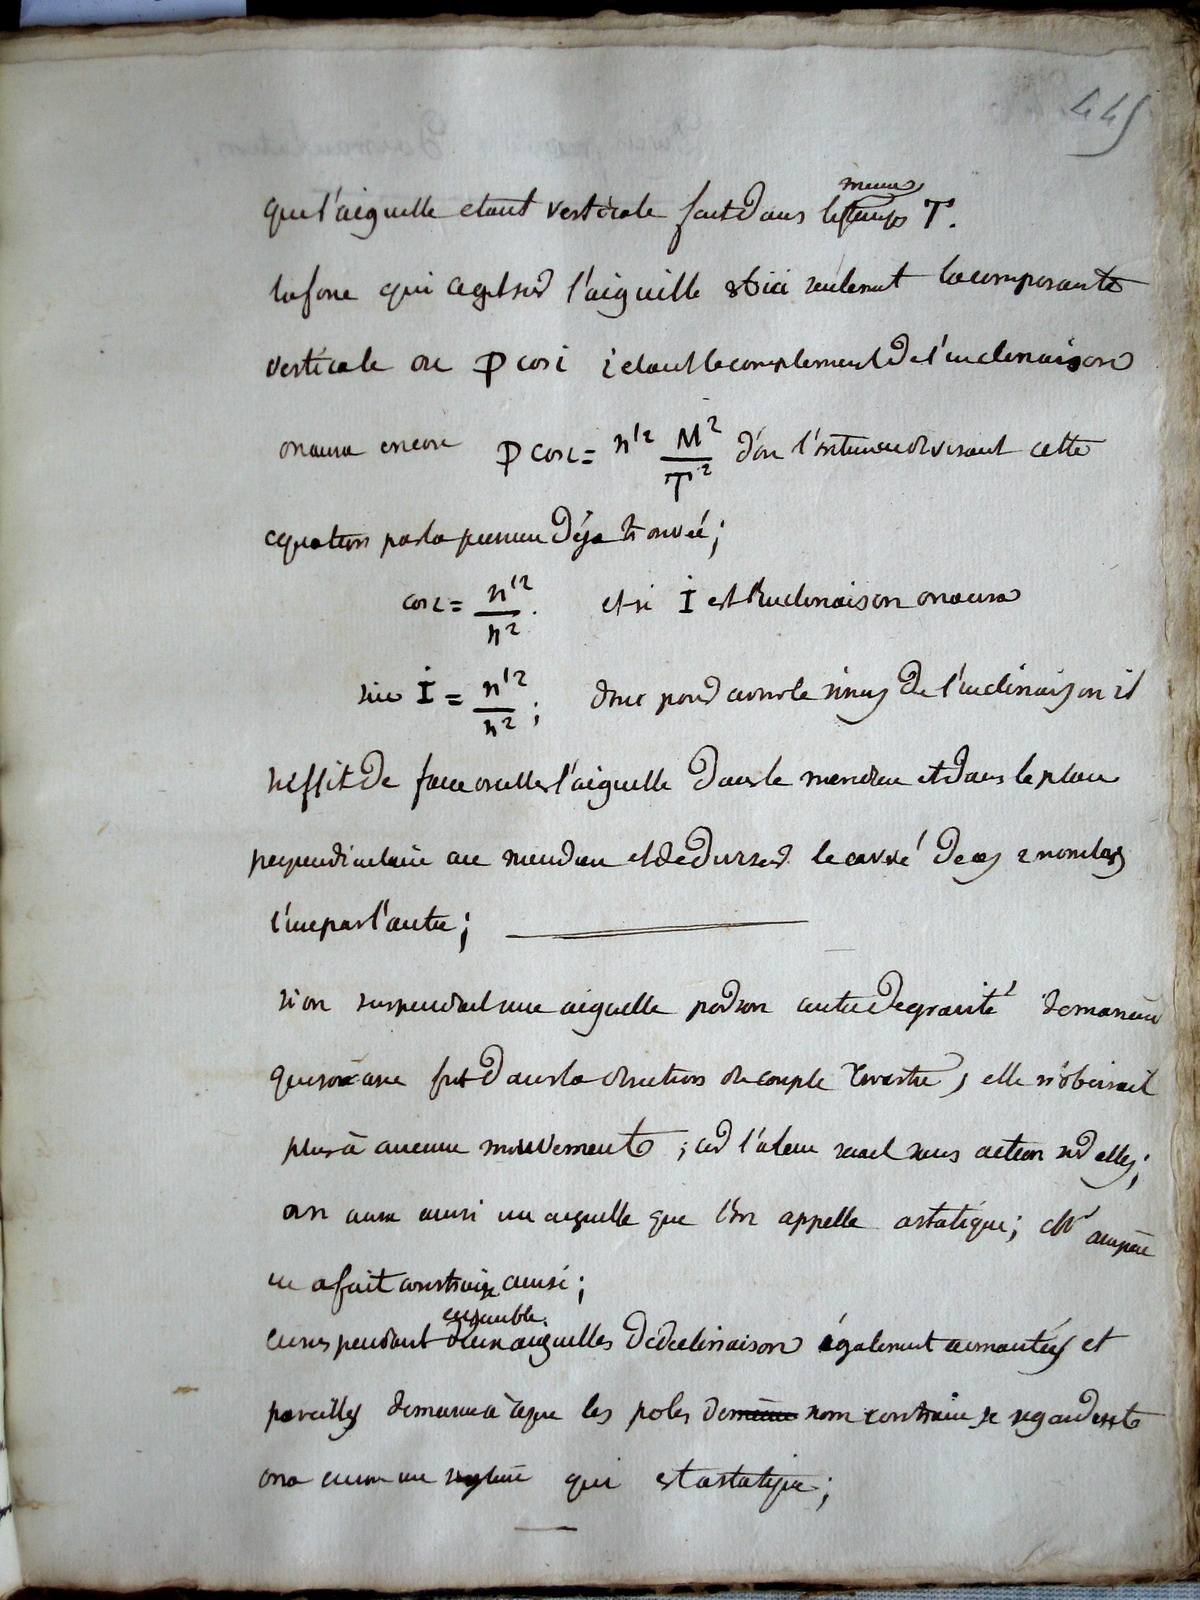 445
que l'aiguille etant verticale fait dans le même temps T.
la force qui agit sur l'aiguille est ici seulement la composante
verticale ou P cos i i etant le complement de l'inclinaison
on aura encore P cos i = n'² M²/T² d'ou l'on tire en divisant cette
equation par la premiere déja trouvée;
cos i = n'²/n². et si I est l'inclinaison on aura
sin I = n'²/n²; donc pour avoir le sinus de l'inclinaison il
suffit de faire osciller l'aiguille dans le meridien et dans le plan
perpendiculaire au meridien et de diviser le carré de ces 2 nombres
l'un par l'autre;
si on suspendait une aiguille par son centre de gravité de maniere
que son axe fut dans la direction du couple terrestre, elle n'obeirait
plus à aucun mouvement; car l'aiman serait sans action sur elle;
on aura ainsi une aiguille que l'on appelle astatique; Mr ampère
en a fait construire ainsi;
en suspendant ensemble deux aiguilles de declinaison également aimantées et
pareilles de maniere à ce que les poles de même nom contraire se regardent
on a encore un systeme qui est astatique;